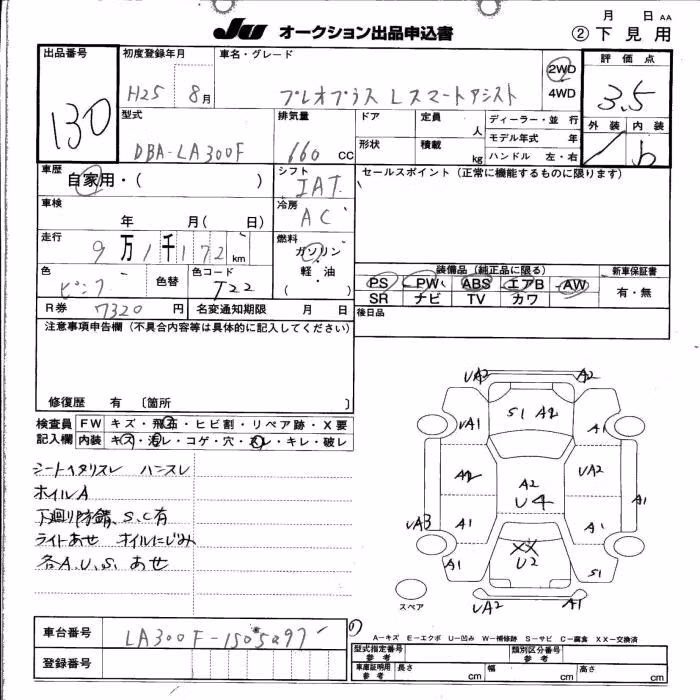 月 日 AA
JU オークション出品申込書 ② 下見用
出品番号 初度登録年月 車名・グレード 評価点
130 H25 8月 プレオプラス Lスマートアシスト 2WD 4WD 3.5
型式 排気量 ドア 定員 人 ディーラー・並行 外装 内装
DBA-LA300F 660 cc 形状 積載 kg モデル年式 年 b
ハンドル 左・右
車歴 自家用・( ) シフト IAT セールスポイント(正常に機能するものに限ります)
車検 年 月( 日) 冷房 AC
走行 9万1千172km 燃料 ガソリン・軽油 ( )
色 ピンク 色替 色コード T22
装備品(純正品に限る) 新車保証書
PS PW ABS エアB AW 有・無
SR ナビ TV カワ
R券 7320円 名変通知期限 月 日 後日品
注意事項申告欄(不具合内容等は具体的に記入してください)
修復歴 有 〔箇所 〕
検査員記入欄 FW キズ・飛石・ヒビ割・リペア跡・X要
内装 キズ・汚レ・コゲ・穴・スレ・キレ・破レ
シートヘタリスレ ハンスレ
ホイルA
下廻り防錆、S.C有
ライトあせ オイルにじみ
各A.U.S. あせ
UA2 A2
S1 A2
UA1 A1
A2 A2 UA2
U4
UA3 A1 A1 A1
XX
U2
A1 S1
UA2 A1
スペア
車台番号 LA300F-1505297
登録番号
A-キズ E-エクボ U-凹み W-補修跡 S-サビ C-腐食 XX-交換済
型式指定番号 参考 類別区分番号 参考
車庫証明用 参考 長さ cm 幅 cm 高さ cm